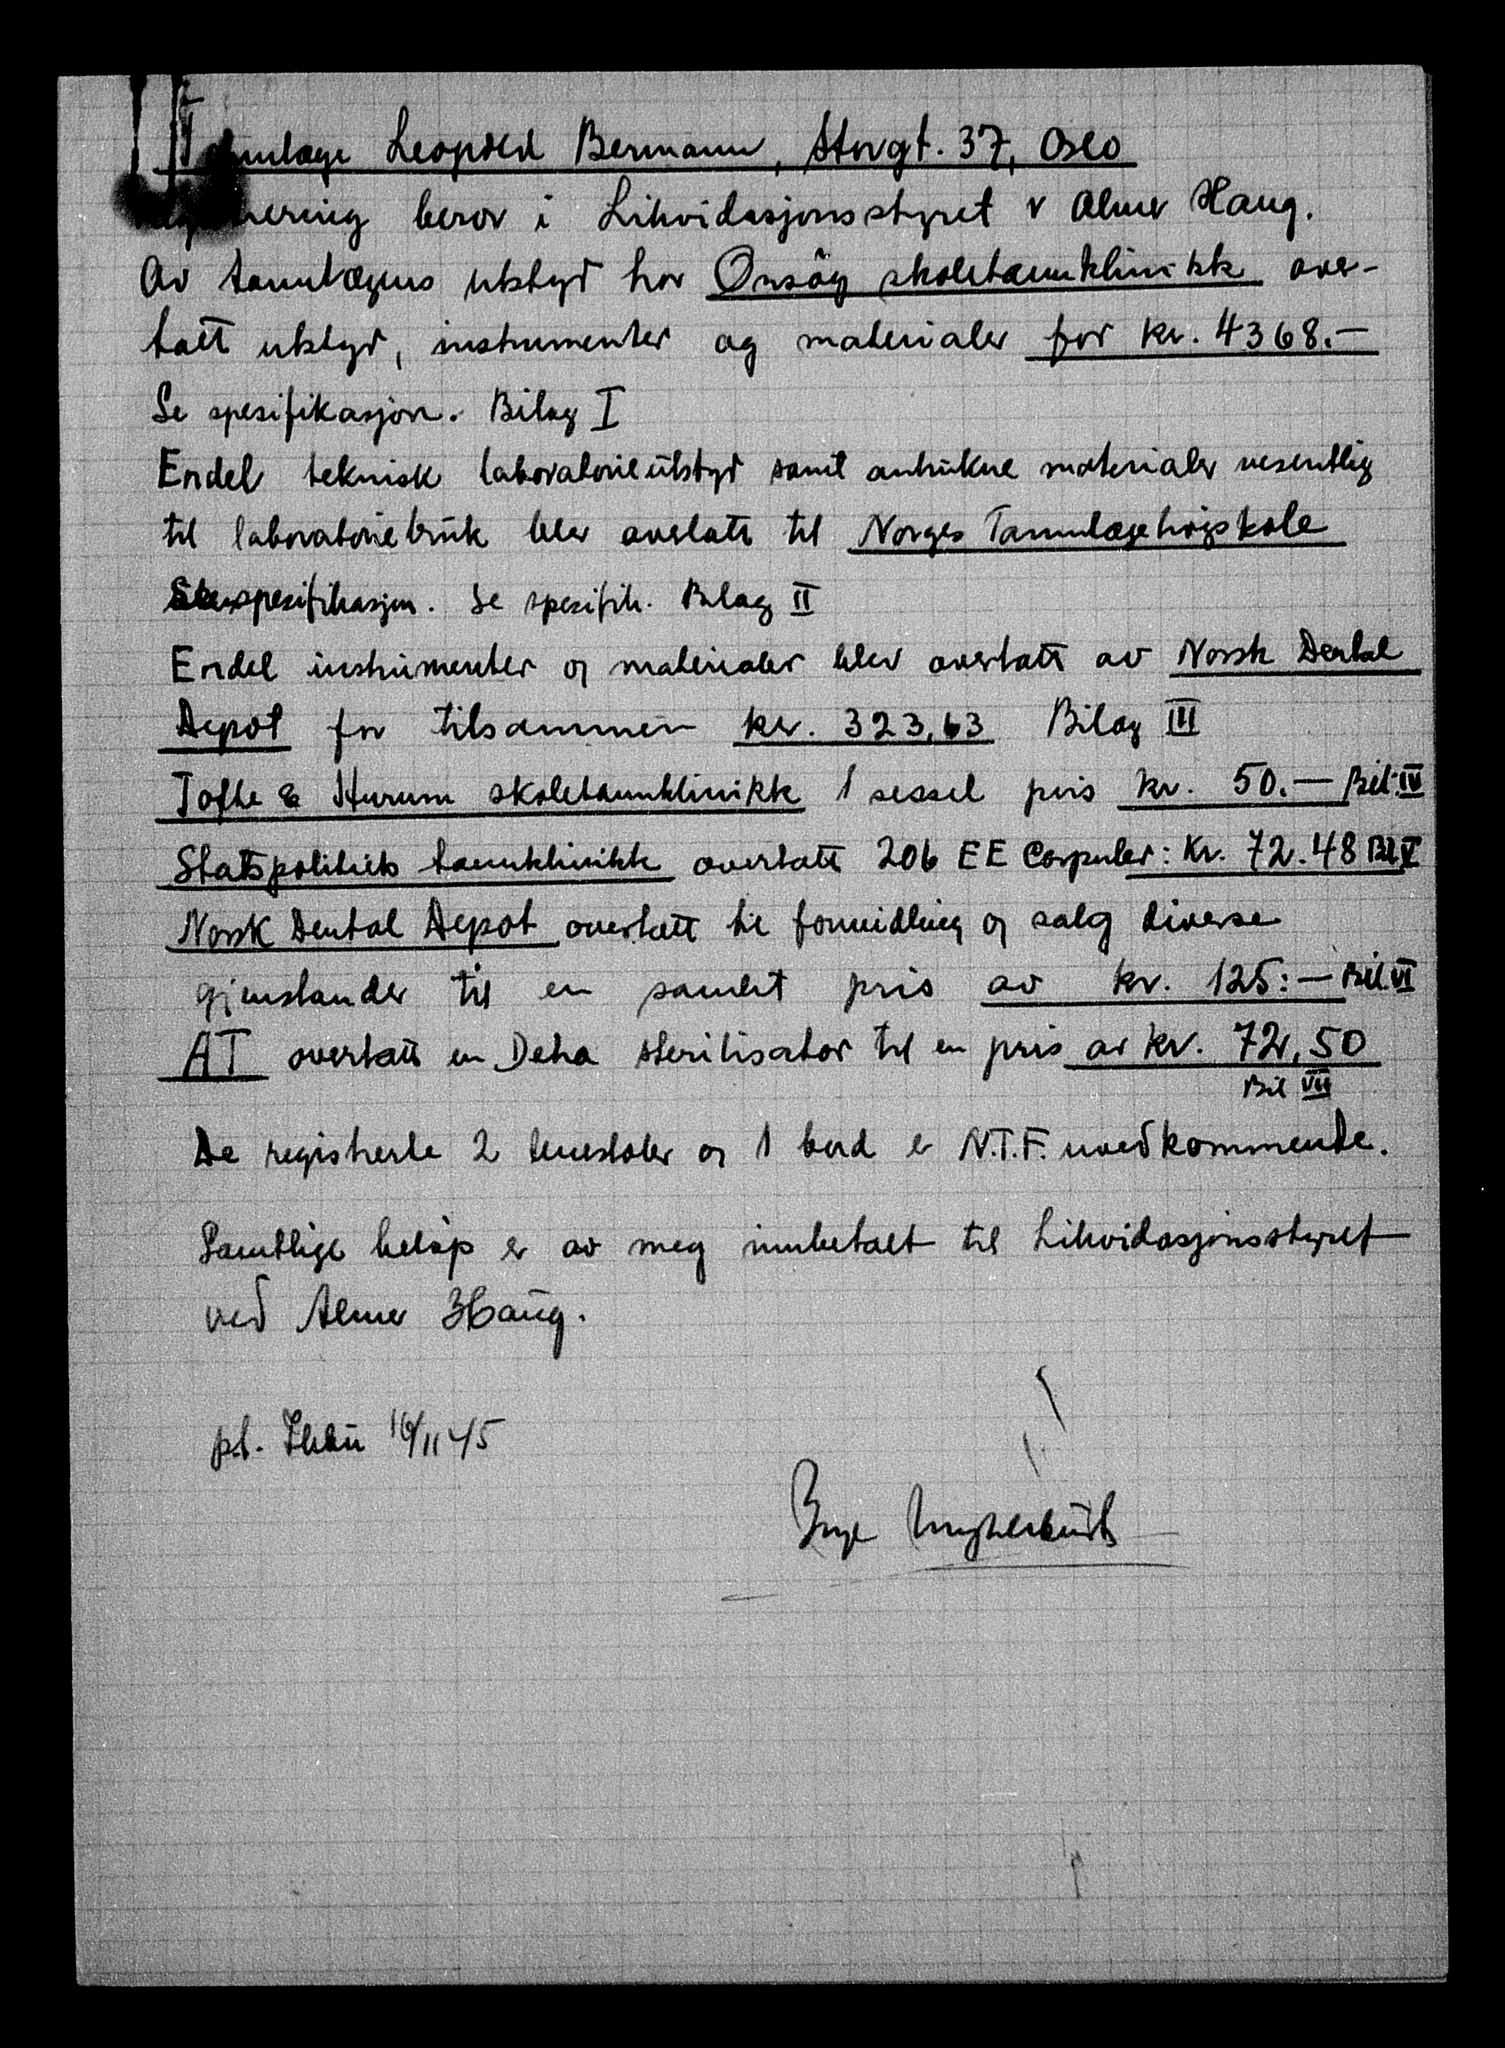 Tannlæge Leopold Bermann, Storgt. 37, Oslo
beror i Likvidasjonsstyret v Almer Haug.
Av tannlægens utstyr har Onsöy skoletannklinikk over-
tatt utstyr, instrumenter og materialer for kr. 4368.—
Se spesifikasjon. Bilag I
Endel teknisk laboratorieutstyr samt antrukne materialer vesentlig
til laboratoriebruk blev overlatt til Norges Tannlægehøgskole
spesifikasjon. Se spesifik. Bilag II
Endel instrumenter og materialer blev overtatt av Norsk Dental
Depot for tilsammen kr. 323,63 Bilag III
Tofte & Hurum skoletannklinikk 1 sessel pris kr. 50.— Bil. IV
Statspolitiets tannklinikk overtatt 206 EE Corpuler: Kr. 72.48 Bil V
Norsk Dental Depot overtatt til formidling og salg diverse
gjenstander til en samlet pris av kr. 125:— Bil. VI
AT overtatt en Deha sterilisator til en pris av kr. 72,50
Bil VII
De registrerte 2 lenestoler og 1 bord er N.T.F. uvedkommende.
Samtlige beløp er av meg innbetalt til Likvidasjonsstyret
ved Almer Haug.
p.t. 16/11 45